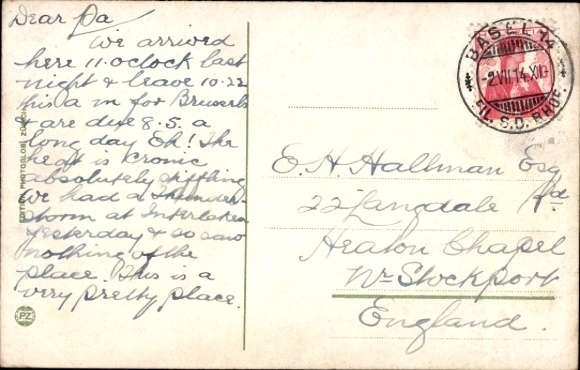 Dear Pa
We arrived
here 11.oclock last
night & leave 10-22
this a m for Brussels
& are due 8.5. a
long day Eh! The
heat is cronic
absolutely stiffling
We had a Thunder-
storm at Interlaken
yesterday & so saw
nothing of the
place. This is a
very pretty place.
EDITION PHOTOGLOB ZÜRICH
PZ
BASEL 14
-2.VII.14.XII-
FIL. S.B. BHOF.
E. H. Hallman Esq
22 Langdale Rd.
Heaton Chapel
Nr Stockport
England.